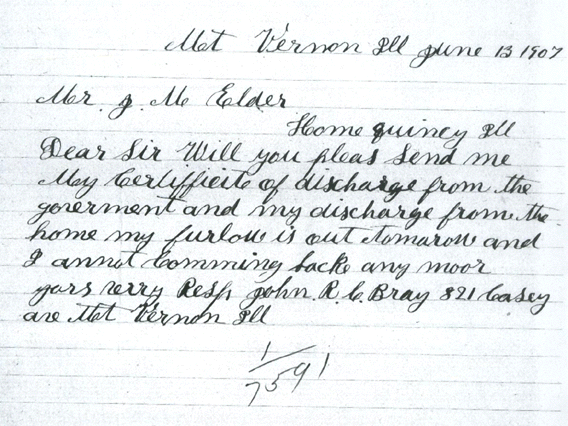 Mt Vernon Ill June 13 1907
Mr. J. M Elder
Home Quincy Ill
Dear Sir Will you pleas Send me
My Certifficite of discharge from the
goverment and my discharge from the
home my furlow is out tomarow and
I annot Comming back any moor
yars verry Resp John. R. C. Bray 821 Casey
ave Mt Vernon Ill
1
7591